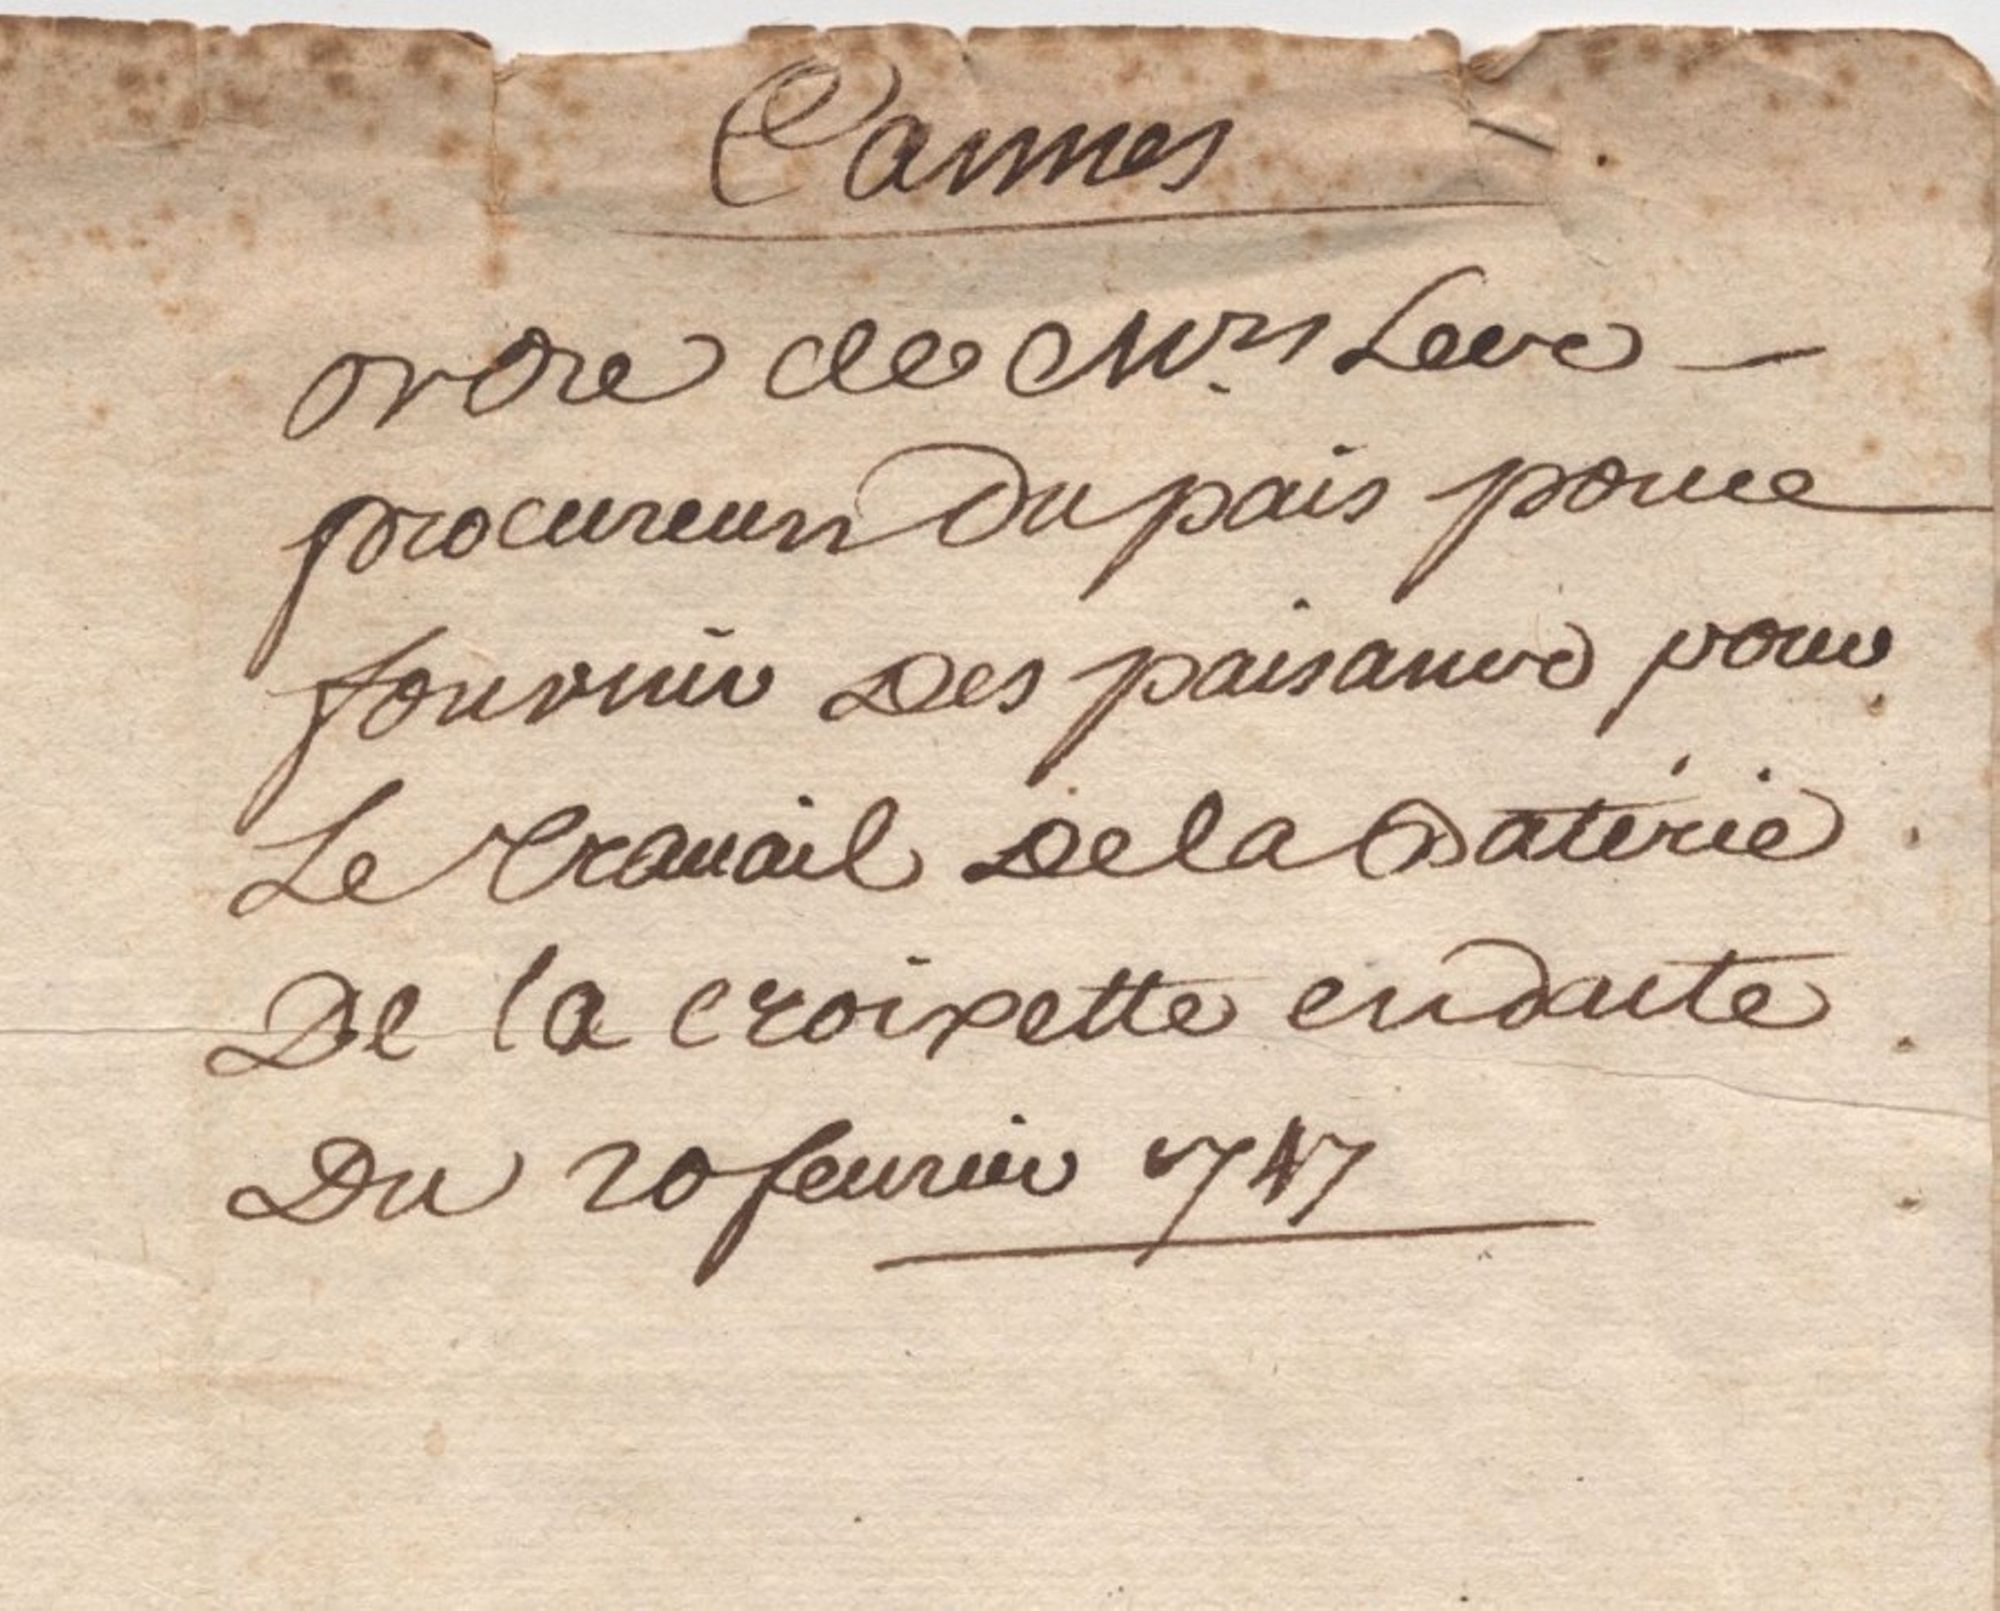 Cannes
ordre de Mrs Les
procureurs du païs pour
fournir Des païsants pour
Le travail De la Baterie
De la croixette en datte
Du 20 feurier 1747